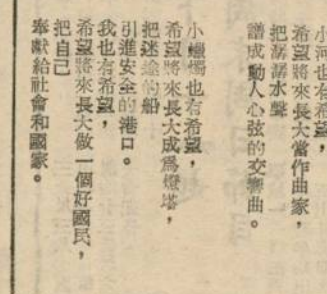 小河也有希望，
希望將來長大當作曲家，
把潺潺水聲
譜成動人心弦的交響曲。
小蠟燭也有希望，
希望將來長大成爲燈塔，
把迷途的船
引進安全的港口。
我也有希望，
希望將來長大做一個好國民，
把自己
奉獻給社會和國家。